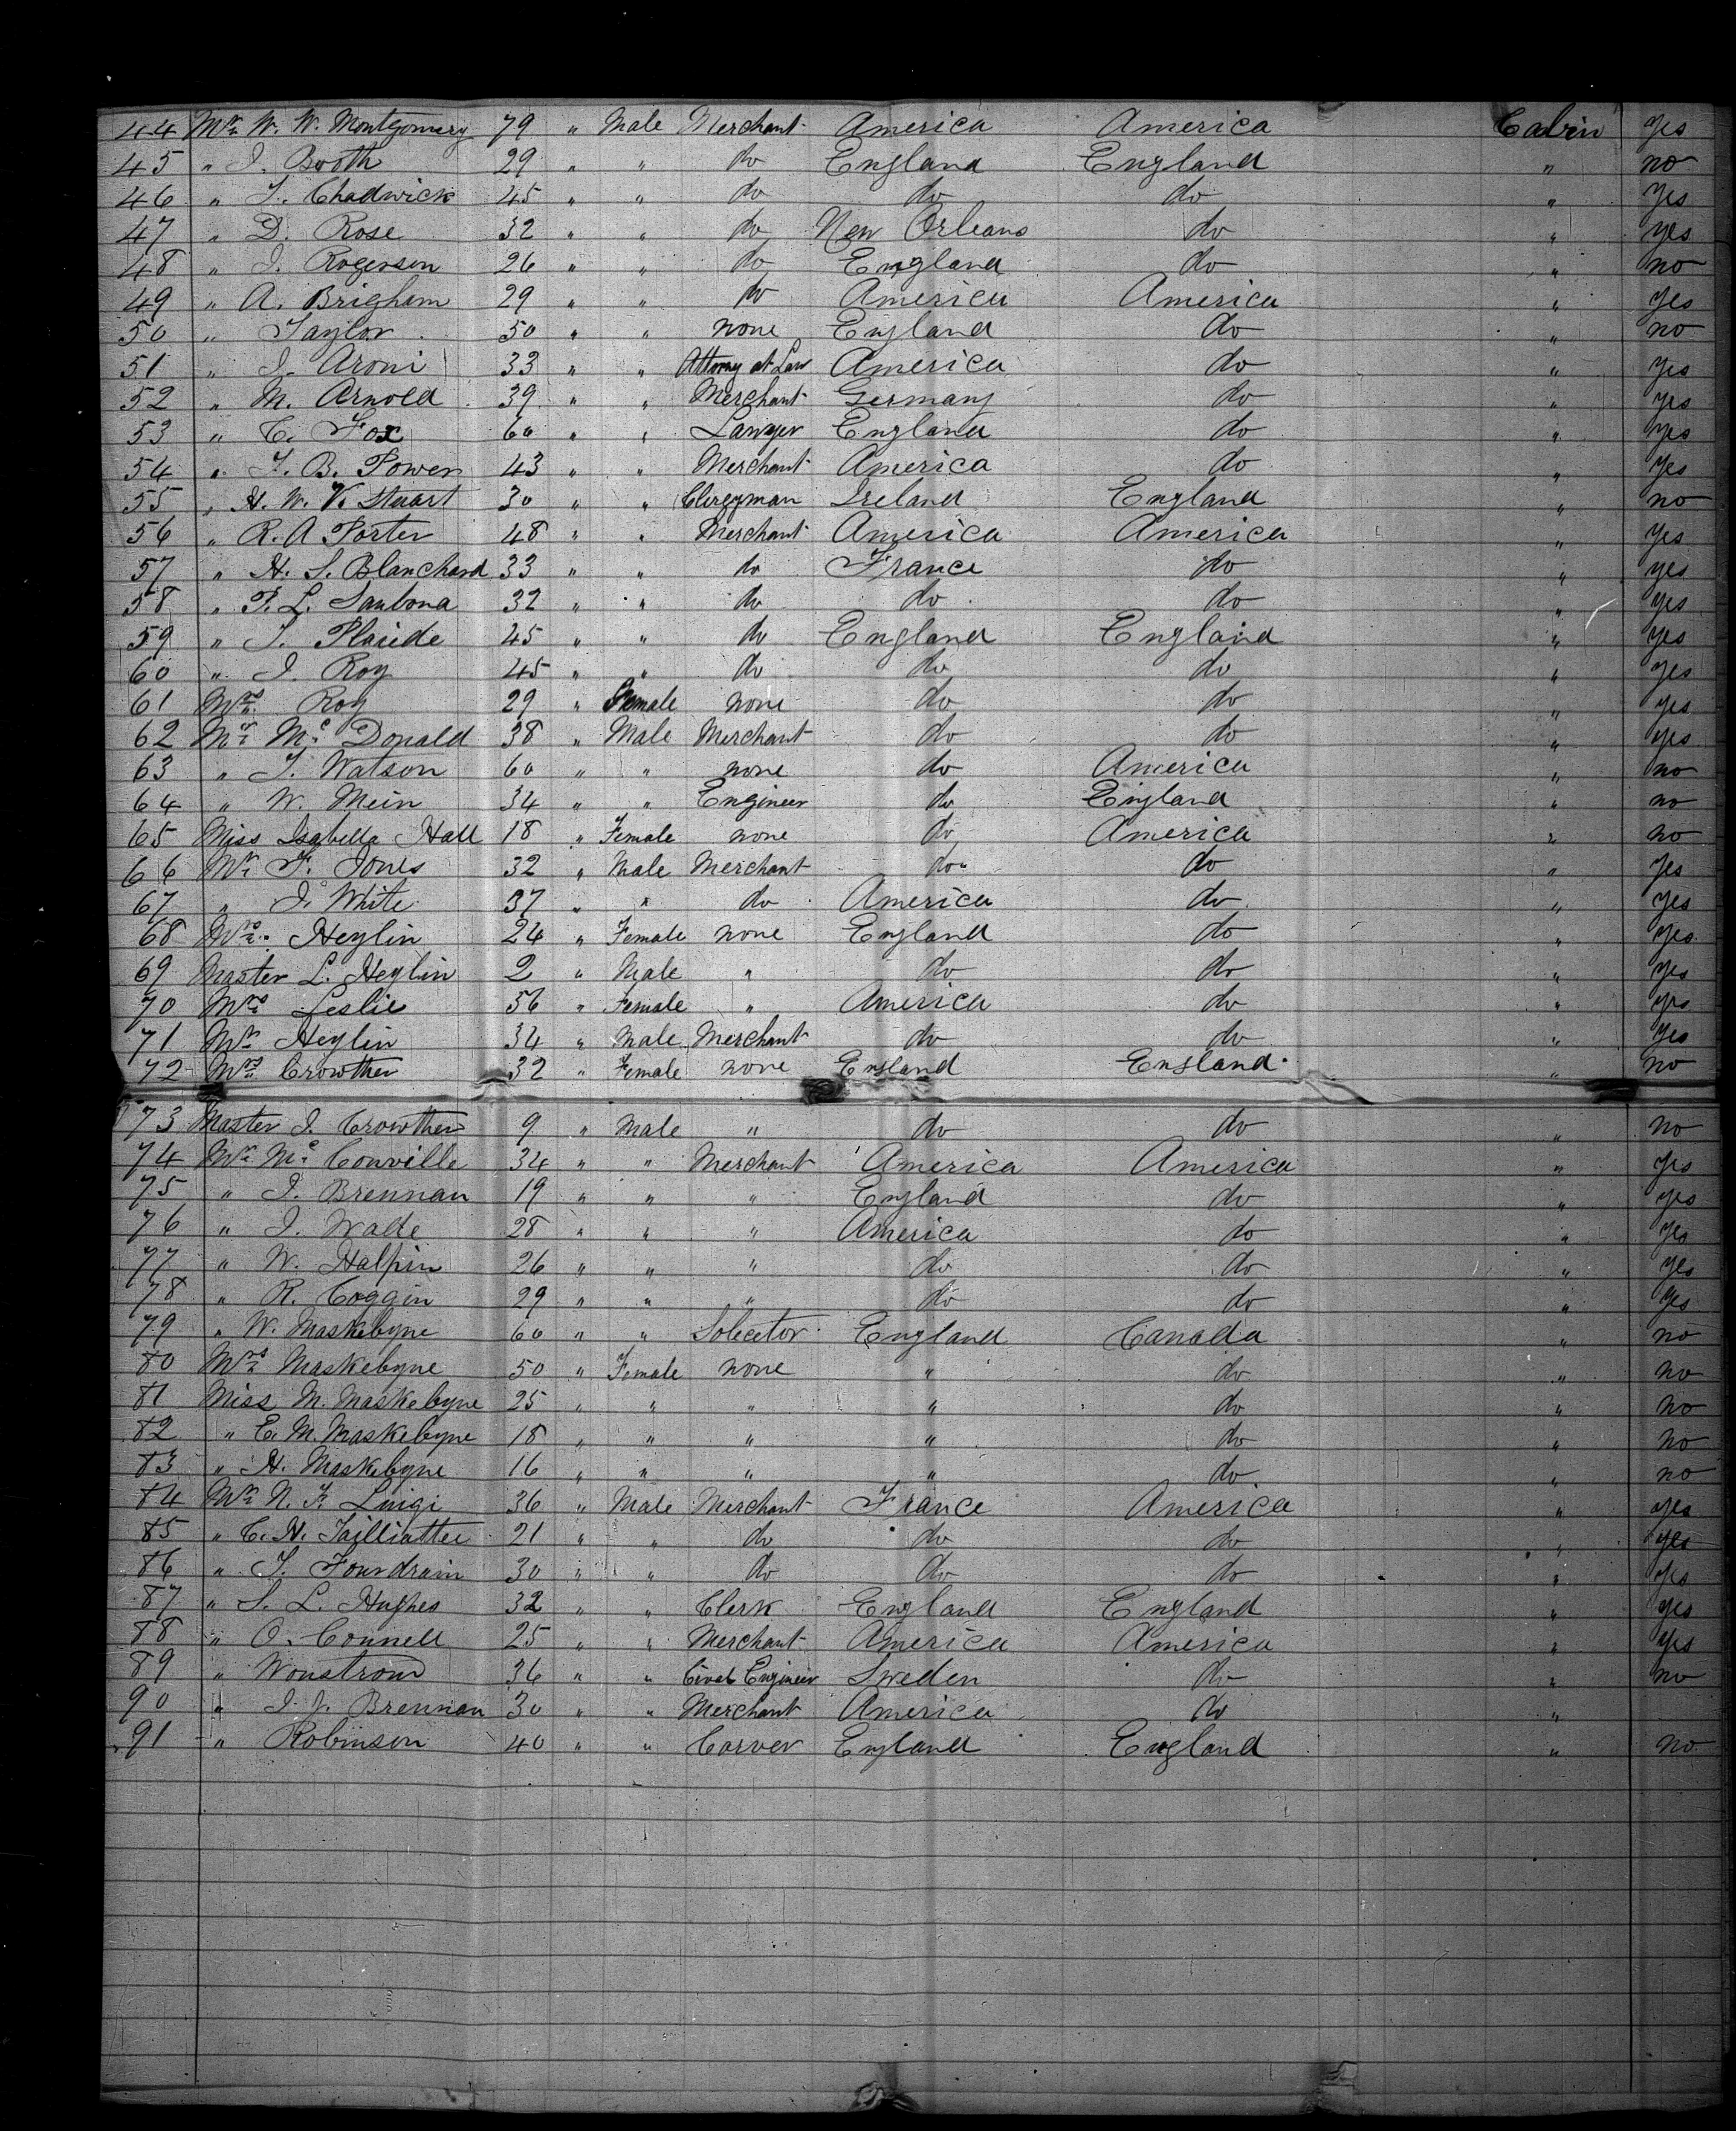 44 Mr. W. W. Montgomery 79 " Male Merchant America America Cabin yes
45 " J. Booth 29 " " do England England " no
46 " T. Chadwick 45 " " do do do " yes
47 " D. Rose 32 " " do New Orleans do " yes
48 " J. Rogerson 26 " " do England do " no
49 " A. Brigham 29 " " do America America " yes
50 " Taylor 50 " " none England do " no
51 " J. Aroni 33 " " Attorny at Law America do " yes
52 " M. Arnold 39 " " Merchant Germany do " yes
53 " C. Fox 60 " " Lawyer England do " yes
54 " J. B. Power 43 " " Merchant America do " yes
55 " H. W. V. Stuart 30 " " Clergyman Ireland England " no
56 " R. A Porter 48 " " Merchant America America " yes
57 " H. S. Blanchard 33 " " do France do " yes
58 " P. L. Saubona 32 " " do do do " yes
59 " T. Plaide 45 " " do England England " yes
60 " J. Roy 45 " " do do do " yes
61 Mrs. Roy 29 " Female none do do " yes
62 Mr. Mc. Donald 38 " Male Merchant do do " yes
63 " T. Watson 60 " " none do America " no
64 " W. Mein 34 " " Engineer do England " no
65 Miss Isabella Hall 18 " Female none do America " no
66 Mr. F. Jones 32 " Male Merchant do do " yes
67 " J. White 37 " " do America do " yes
68 Mrs. Heylin 24 " Female none England do " yes
69 Master L. Heylin 2 " Male " do do " yes
70 Mrs. Leslie 56 " Female " America do " yes
71 Mr. Heylin 34 " Male Merchant do do " yes
72 Mrs. Crowther 32 " Female none England England " no
73 Master J. Crowther 9 " Male " do do " no
74 Mr. Mc. Conville 34 " " Merchant America America " yes
75 " J. Brennan 19 " " " England do " yes
76 " J. Wade 28 " " " America do " yes
77 " W. Halpin 26 " " " do do " yes
78 " R. Coggin 29 " " " do do " yes
79 " W. Maskelyne 60 " " Solicitor England Canada " no
80 Mrs. Maskelyne 50 " Female none " do " no
81 Miss M. Maskelyne 25 " " " " do " no
82 " E. M. Maskelyne 18 " " " " do " no
83 " H. Maskelyne 16 " " " " do " no
84 Mr. N. F. Luigi 36 " Male Merchant France America " yes
85 " C. H. Tailliattee 21 " " do do do " yes
86 " T. Fourdrain 30 " " do do do " yes
87 " S. L. Hughes 32 " " Clerk England England " yes
88 " O. Connell 25 " " Merchant America America " yes
89 " Wonstrom 36 " " Civel Engineer Sweden do " no
90 " J. J. Brennan 30 " " Merchant America do "
91 " Robinson 40 " " Carver England England " no